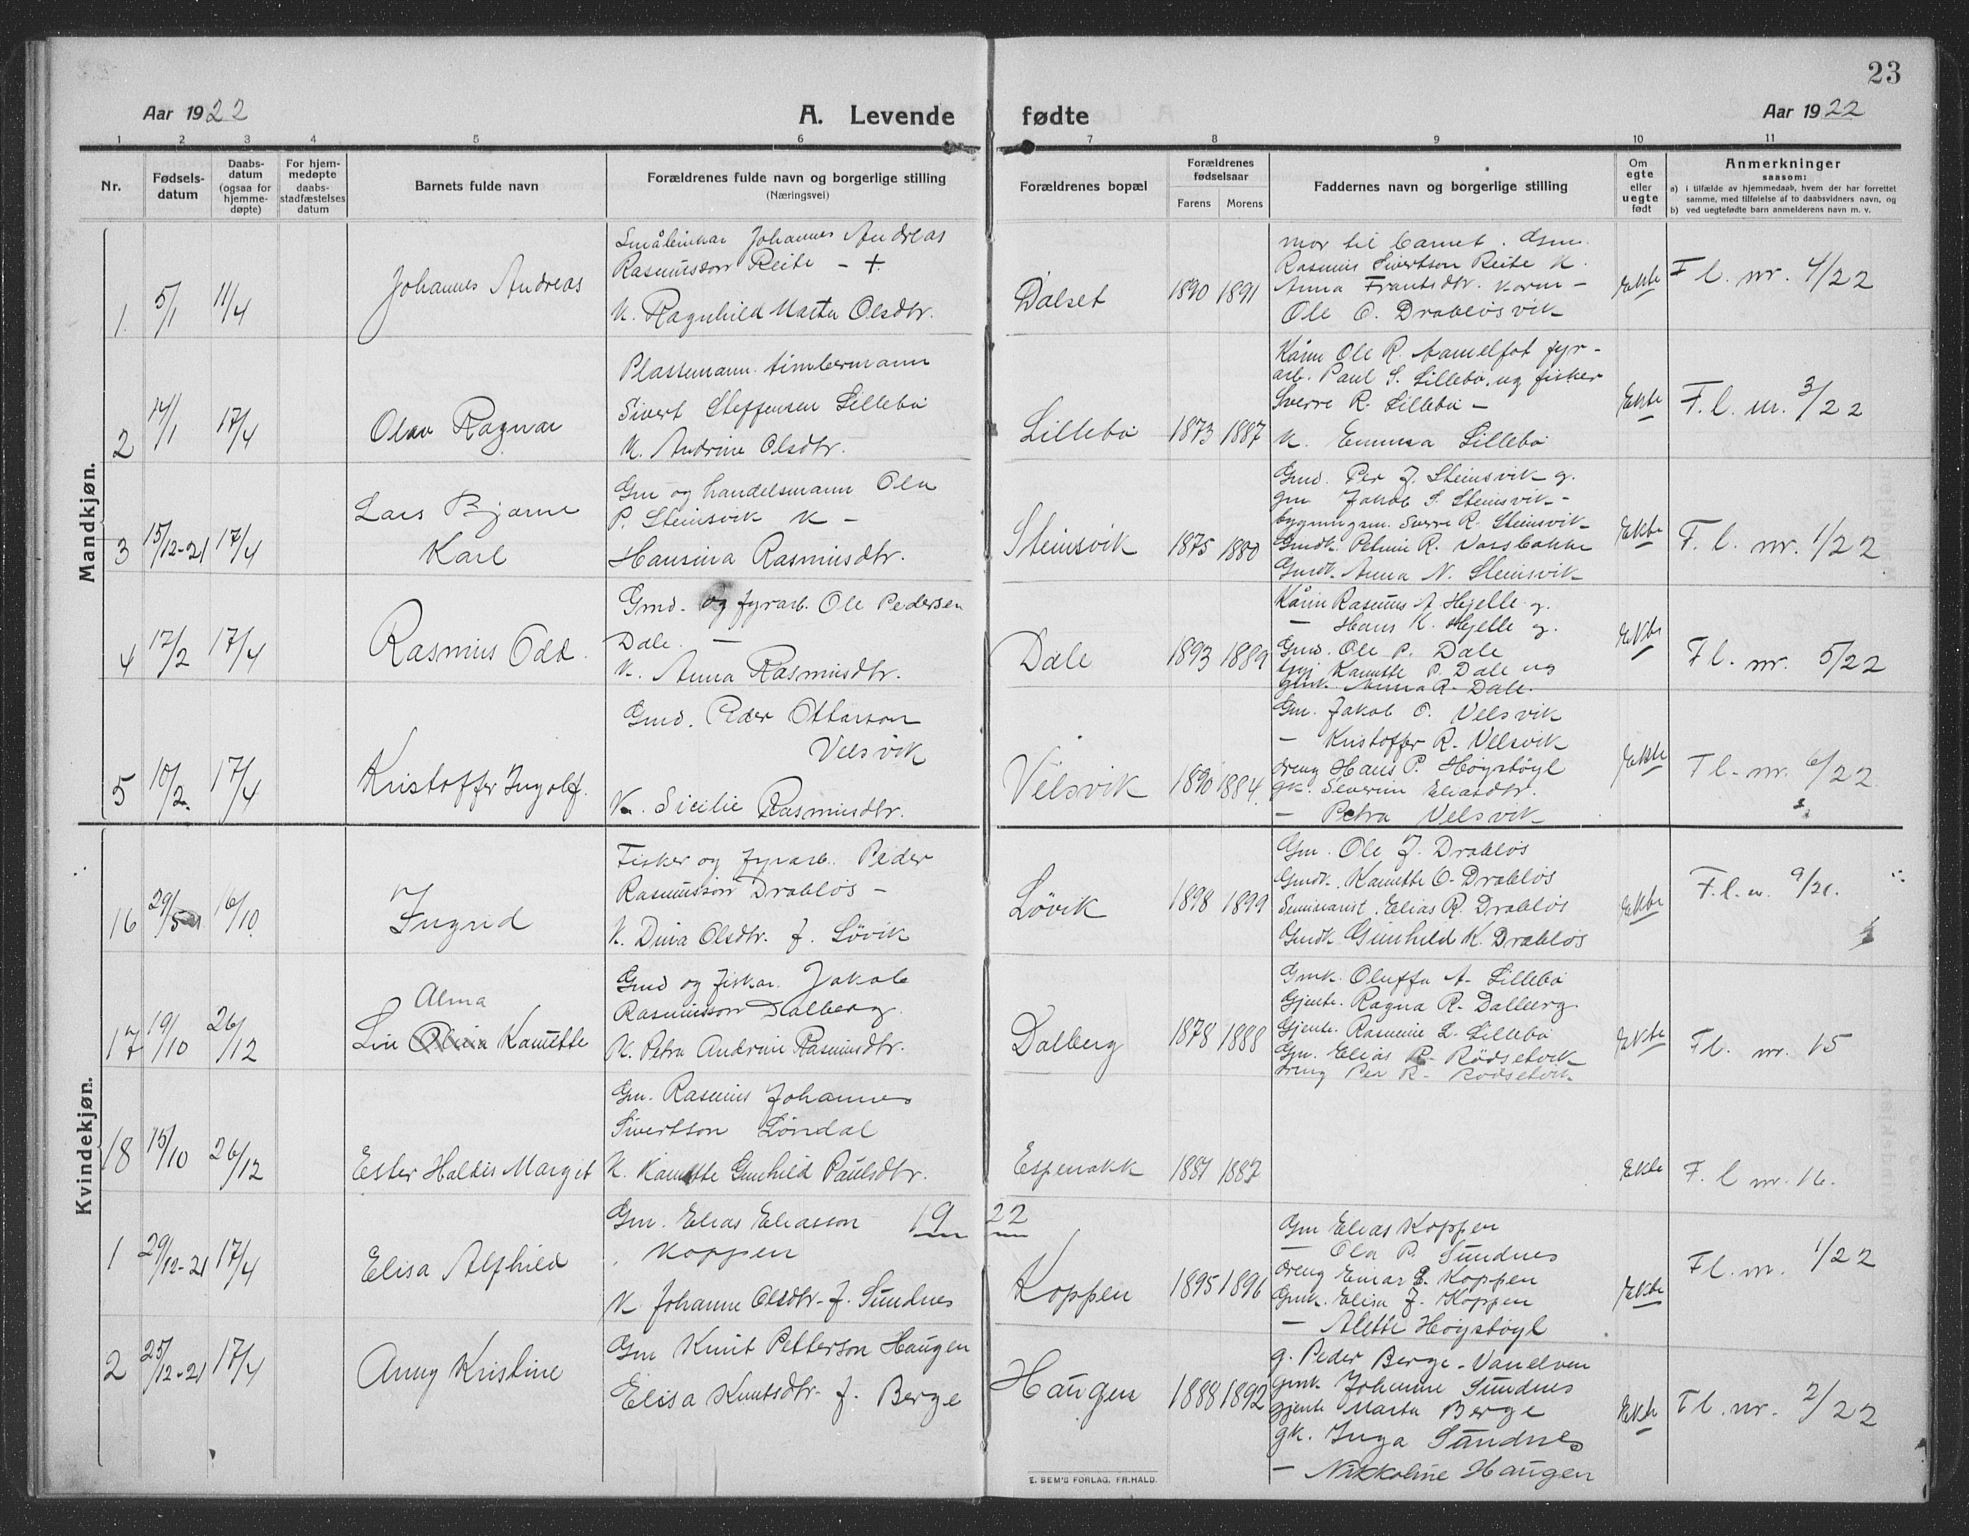 23
Aar 1922
A. Levende
fødte
Aar 1922
1 2 3 4 5 6 7 8 9 10 11
Nr.
Fødsels-
datum
Daabs-
datum
(ogsaa for
hjemme-
døpte)
For hjem-
medøpte
daabs-
stadfæstelses
datum
Barnets fulde navn
Forældrenes fulde navn og borgerlige stilling
(Næringsvei)
Forældrenes bopæl
Forældrenes
fødselsaar
Farens Morens
Faddernes navn og borgerlige stilling
Om
egte
eller
uegte
født
Anmerkninger
saasom:
a) i tilfælde av hjemmedaab, hvem der har forrettet
samme, med tilføielse af to daabsvidners navn, og
b) ved uegtefødte barn anmelderens navn m. v.
Mandkjøn.
1. 5/1 11/4
Johannes Andreas
Johannes Andreas
Rasmusson Reite - +
K. Ragnhild Marta Olsdtr.
Dalset
1890 1891
mor til barnet. Gm.
Rasmus Sivertson Reite K.
Anna Frantsdtr.
Ole O. Drabløsvik
Ekte
F l. nr. 4/22
2 14/1 17/4
Olav Ragnar
Plassemann. timbermann
Sivert Steffensen Lillebø
K. Andrine Olsdtr.
Lillebø
1873 1887
Kårm Ole R. fyr-
arb. Paul S. Lillebø. og fisker
Sverre R. Lillebø -
K. Emma Lillebø
Ekte
F. l. nr. 3/22
3 15/12-21 17/4
Lars Bjarne
Karl
Gm og handelsmann Ola
P. Steinsvik K -
Hansina Rasmusdtr.
Steinsvik
1875 1880
Gmd. Per J. Steinsvik g.
gm Jakob S. Steinsvik -
bygningsm. Sverre R. Steinsvik
Gmdk. Petrine R. Vassbakke
Gmdk. Anna N. Steinsvik
Ekte
F. l. nr. 1/22
4 12/2 17/4
Rasmus Odd.
Gmd. og fyrarb. Ole Pedersen
Dale. -
K. Anna Rasmusdtr.
Dale
1893 1889
Kårm Rasmus A Hjelle g.
- Hans K. Hjelle g.
Gmd. Ole P. Dale
Kanutte P. Dale og
Anna R. Dale.
Ekte
Fl. nr. 5/22
5 10/2 17/4
Kristoffer Ingolf.
Gmd. Peder Ottarson
Velsvik
K. Sicilie Rasmusdtr.
Velsvik
1890 1884.
Gm. Jakob O. Velsvik
- Kristoffer R. Velsvik
dreng Hans P. Høgstøyl
gk. Severine Eliasdtr.
- Petra Velsvik
Ekte
Fl. nr. 6/22
Kvindekjøn.
16 29/5 16/10
Ingrid
Fisker og fyrarb. Peder
Rasmusson Drabløs -
K. Dina Olsdtr. f. Løvik
Løvik
1898 1899
Gm. Ole J. Drabløs
Gmdk. Kanutte O. Drabløs
Seminarist. Elias R. Drabløs
Gmdk Gunhild K. Drabløs
Ekte
F. l. n. 9/21.
17 19/10 26/12
Alma
Lin Olivia Kanutte
Gmd og fisker. Jakob
Rasmusson Dalberg.
K. Petra Andrine Rasmusdtr.
Dalberg
1878 1888
Gmk. Oluffa A. Lillebø
Gjente. Ragna R. Dalberg
Gjente. Rasmine L. Lillebø
Gm. Elias R. Rødsetvik
dreng Per R. Rødsetvik
Ekte
Fl. nr. 15
18 15/10 26/12
Ester Haldis Margit
Gm. Rasmus Johannes
Sivertson Løndal
K. Kanutte Gunhild Paulsdtr.
Espenakk
1881 1887
Ekte
F. l nr. 16.
1922
1 29/12-21 17/4
Elisa Alfhild
Gm. Elias Eliasson
Koppen
K Johanne Olsdtr. f. Sundnes
Koppen
1895 1896
Gm Elias Koppen
- Ola P. Sundnes
dreng Einar E. Koppen
Gmk. Elisa J. Koppen
- Alette Høgstøyl
Ekte
Fl. nr. 1/22
2 25/12-21 17/4
Anny Kristine
Gm Knut Petterson Haugen
Elisa Knutsdtr. f. Berge
Haugen
1888 1892
g. Peder Berge - Vanelven
Gmk Johanne Sundnes
Gjente Marta Berge
gk. Inga Sundnes
- Nikkoline Haugen
Ekte
Fl. nr. 2/22
E. SEM'S FORLAG, FR.HALD.